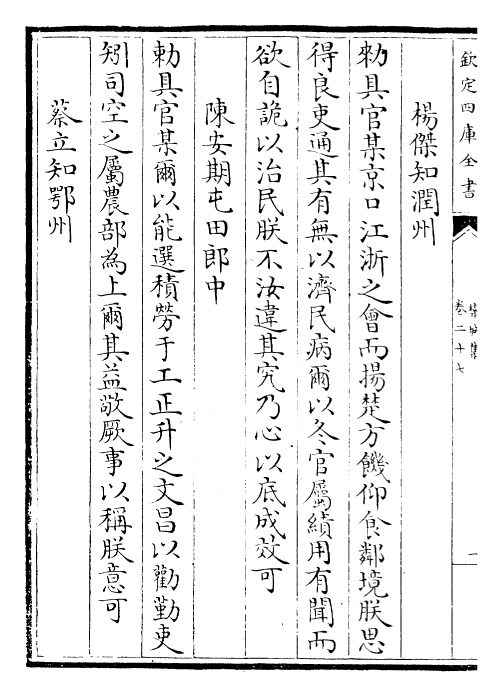 欽定四庫全書
欒城集
卷二十七
一
楊傑知潤州
勑具官某京口江浙之會而揚楚方饑仰食鄰境朕思
得良吏通其有無以濟民病爾以冬官屬績用有聞而
欲自詭以治民朕不汝違其究乃心以底成效可
陳安期屯田郎中
勅具官某爾以能選積勞于工正升之文昌以勸勤吏
矧司空之屬農部為上爾其益敬厥事以稱朕意可
蔡立知鄂州